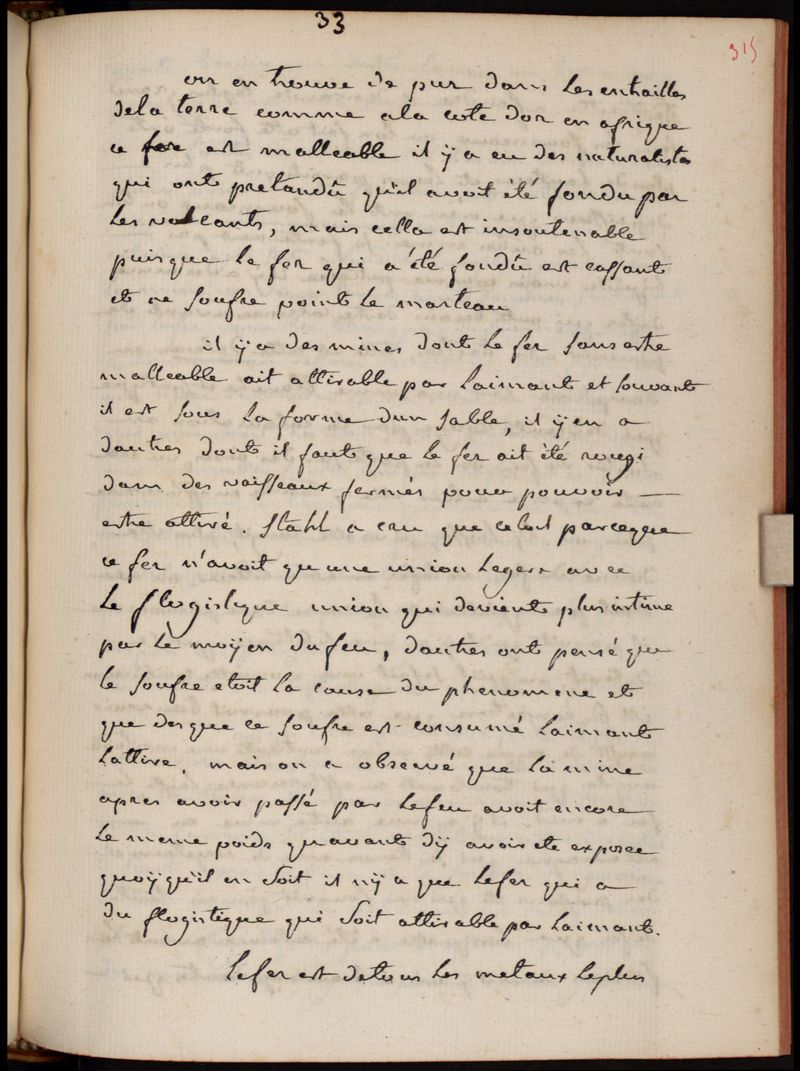 33
315
on en trouve de pur dans les entrailles
dela terre comme ala cote dor en afrique
ce fer est malleable il ÿ a eu des naturalistes
qui ont pretandû qu'il avoit été fondu par
les volcants, mais cella est insoutenable
puisque le fer qui a été fondû est cassant
et ne soufre point le marteau
il ÿ a des mines dont le fer sans estre
malleable ait attirable par laimant et souvant
il est sous la forme dun sable, il ÿ en a
dautres dont il faut que le fer ait été rougi
dans des vaisseaux fermés pour pouvoir —
estre attiré. Stahl a cru que cetoit parceque
ce fer n'avoit qu une union legere avec
le flogistique union qui devient plus intime
par le moÿen du feu, dautres ont pensé que
le soufre etoit la cause du phenomene et
que des que ce soufre est consumé laimant
lattire. mais on a observé que la mine
apres avoir passé par le feu avoit encore
le meme poids quavant dÿ avoir ete exposee
quoÿ qu'il en soit il nÿ a que le fer qui a
du flogistique qui soit attirable par laimant.
le fer est detous les metaux leplus